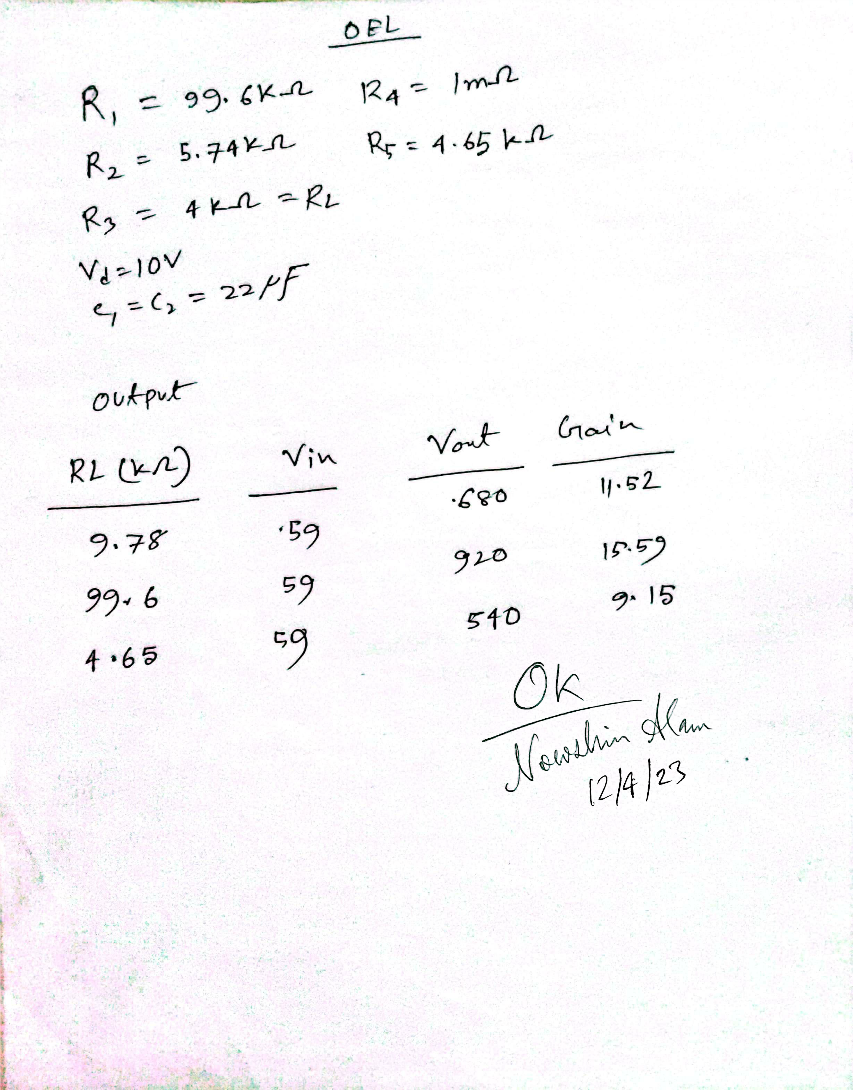 OEL
R1 = 99.6KΩ R4 = 1mΩ
R2 = 5.74KΩ R5 = 4.65 kΩ
R3 = 4 kΩ = RL
Vd=10V
C1 = C2 = 22 μF
output
RL (kΩ) Vin Vout Gain
9.78 .59 .680 11.52
99.6 59 920 15.59
4.65 59 540 9.15
Ok
Nowshin Alam
12/4/23